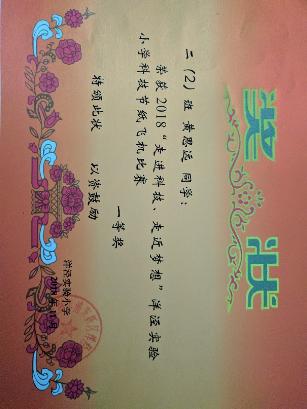 奖状
二（2）班 黄思远 同学：
荣获 2018“走进科技、走近梦想”洋泾实验
小学科技节纸飞机比赛 一等奖
特颁此状 以资鼓励
洋泾实验小学